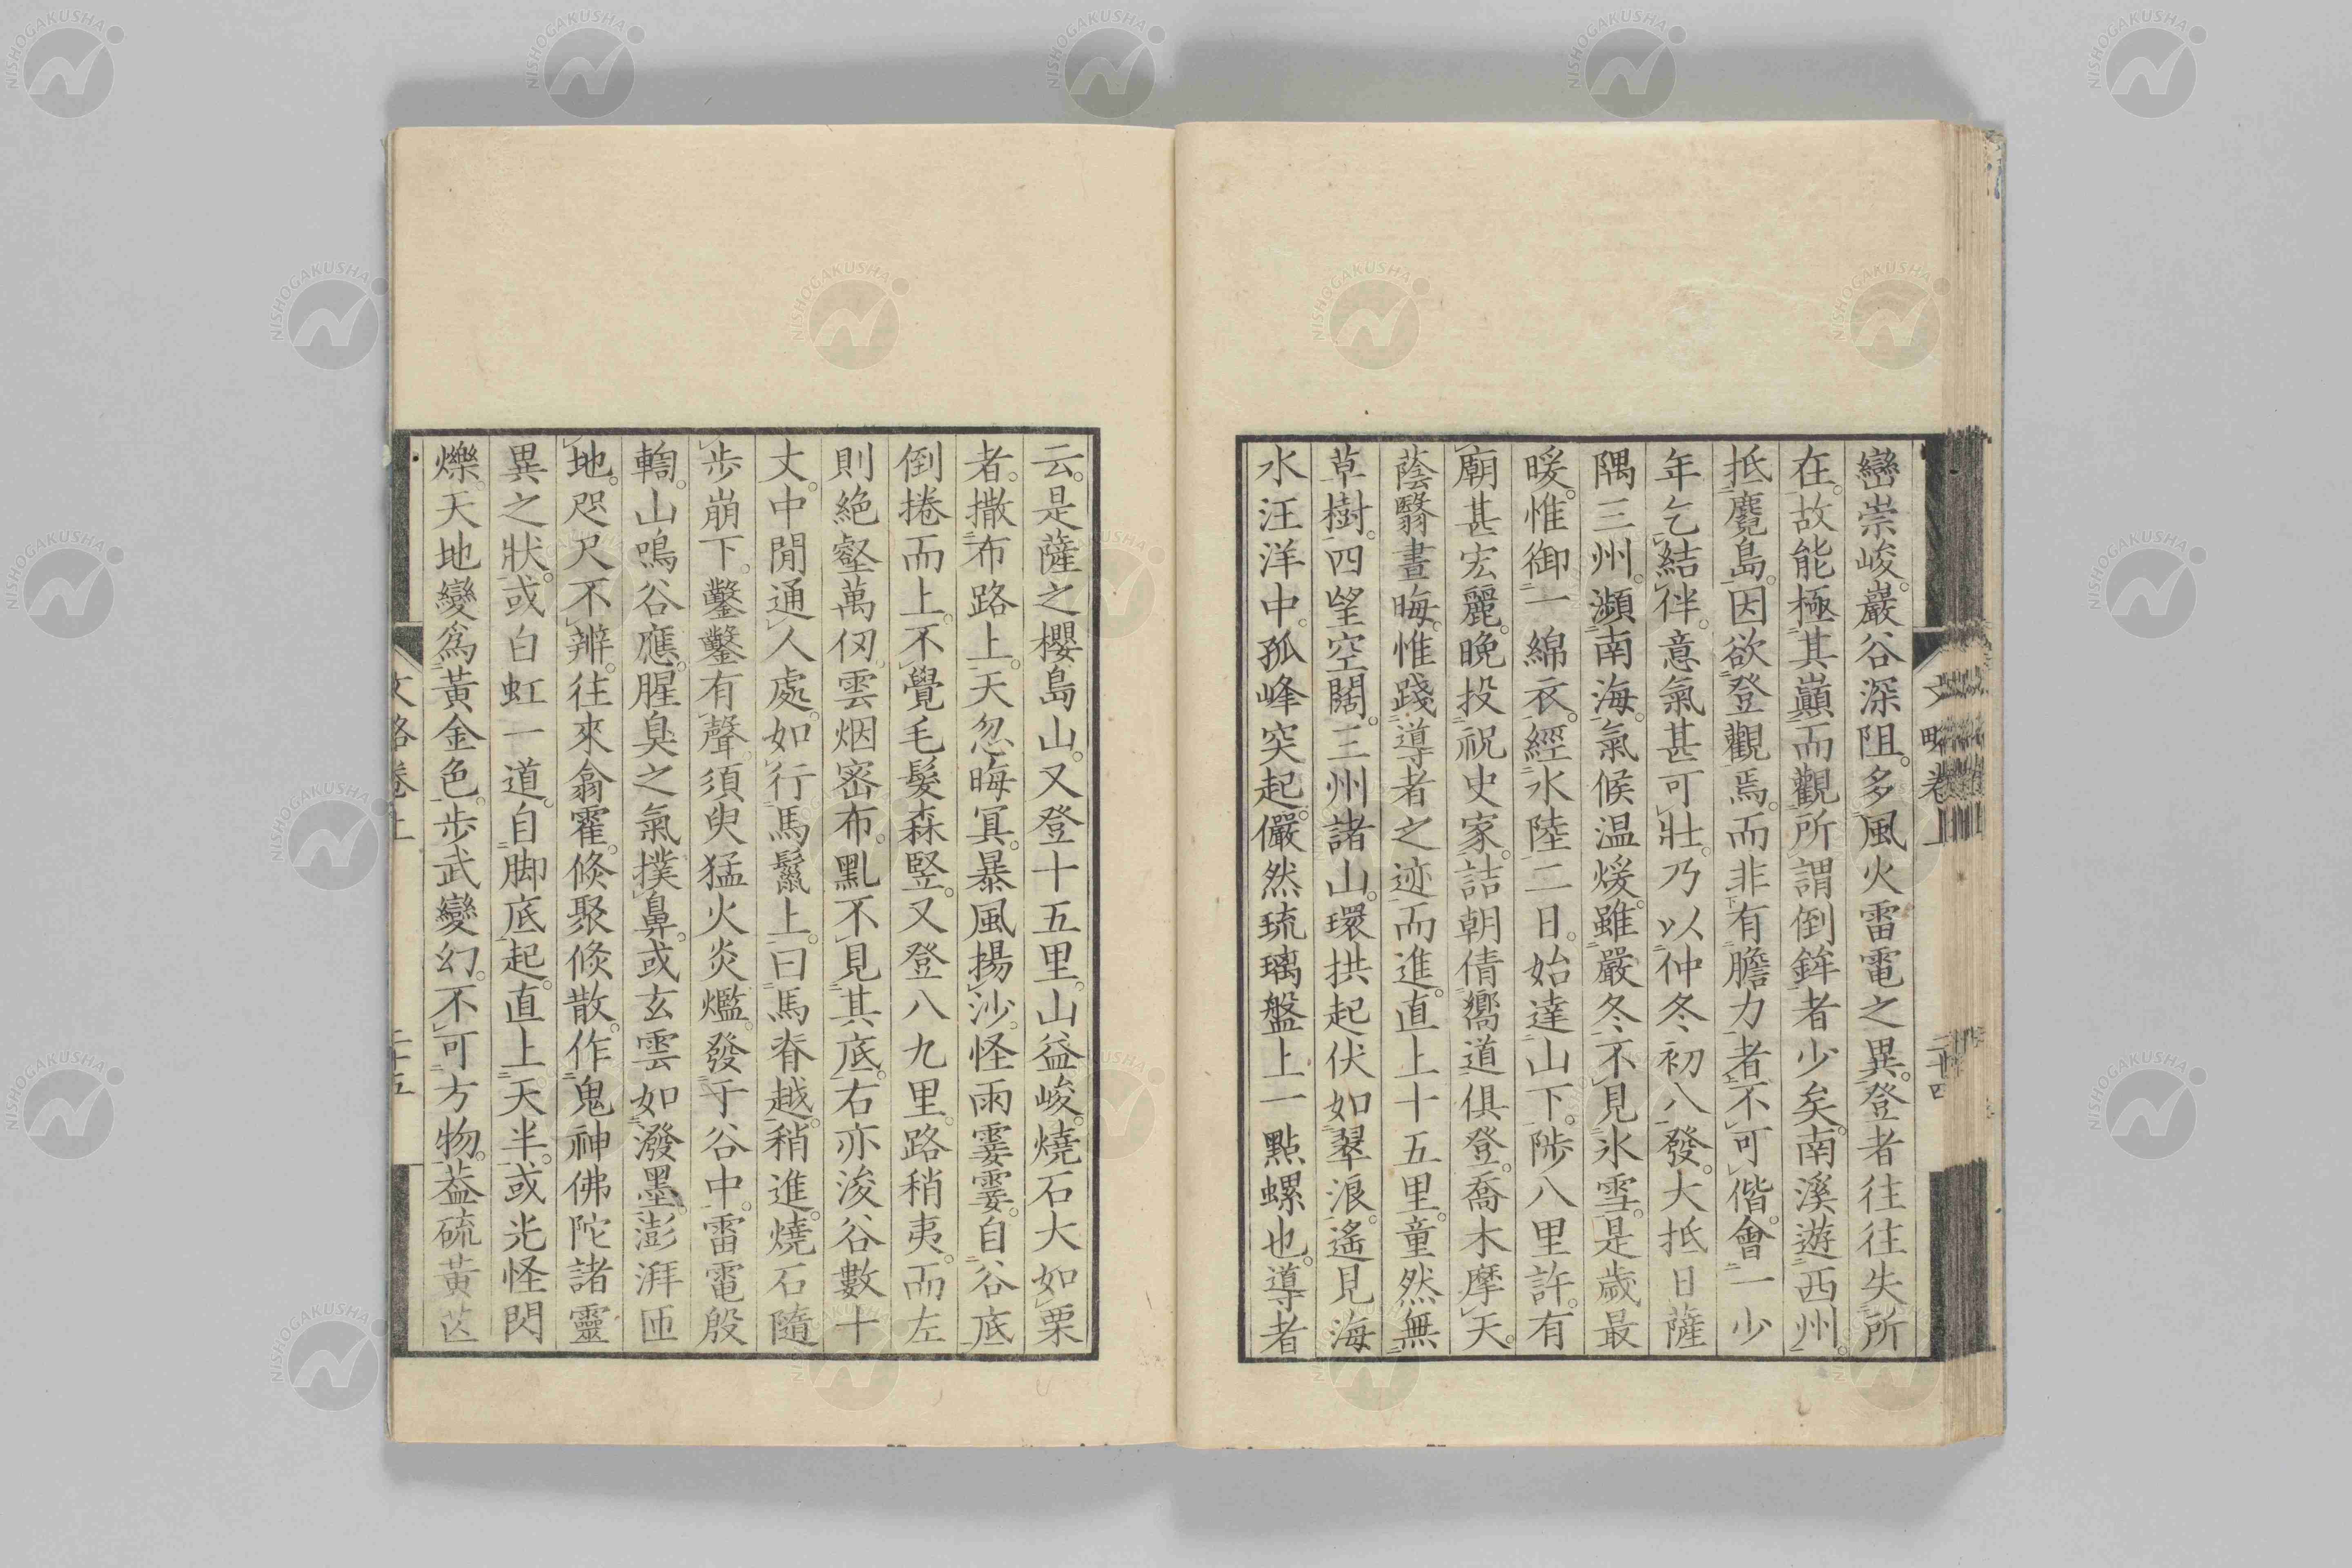 巒崇峻。巖谷深阻。多風火雷電之異。登者往往失所
在。故能極其巓而觀所謂倒鉾者少矣。南溪遊西州。
抵麑島。因欲登觀焉。而非有膽力者不可偕。會一少
年乞結伴。意氣甚可壯。乃以仲冬初八發。大抵日薩
隅三州。瀕南海。氣候温煖。雖嚴冬不見氷雪。是歲最
暖。惟御一綿衣。經水陸二日。始達山下。陟八里許。有
廟甚宏麗。晩投祝史家。詰朝倩嚮道俱登。喬木摩天。
蔭翳晝晦。惟踐導者之迹而進。直上十五里。童然無
草樹。四望空闊。三州諸山。環拱起伏如翠浪。遙見海
水汪洋中。孤峰突起。儼然琉璃盤上一點螺也。導者
文略卷上
二十四
云。是薩之櫻島山。又登十五里。山益峻。燒石大如栗
者。撒布路上。天忽晦冥。暴風揚沙。怪雨霎霎。自谷底
倒捲而上。不覺毛髮森竪。又登八九里。路稍夷。而左
則絶壑萬仞。雲烟密布。亂不見其底。右亦浚谷數十
丈。中閒通人處。如行馬鬣上。曰馬脊越。稍進。燒石隨
步崩下。鑿鑿有聲。須臾猛火炎爁。發于谷中。雷電殷
轎。山鳴谷應。腥臭之氣撲鼻。或玄雲如潑墨。澎湃匝
地。咫尺不辨。往來翕霍。倏聚倏散。作鬼神佛陀諸靈
異之狀。或白虹一道。自脚底起。直上天半。或光怪閃
爍。天地變爲黃金色。步武變幻。不可方物。葢硫黃氣
文略卷上
二十五
NISHOGAKUSHA